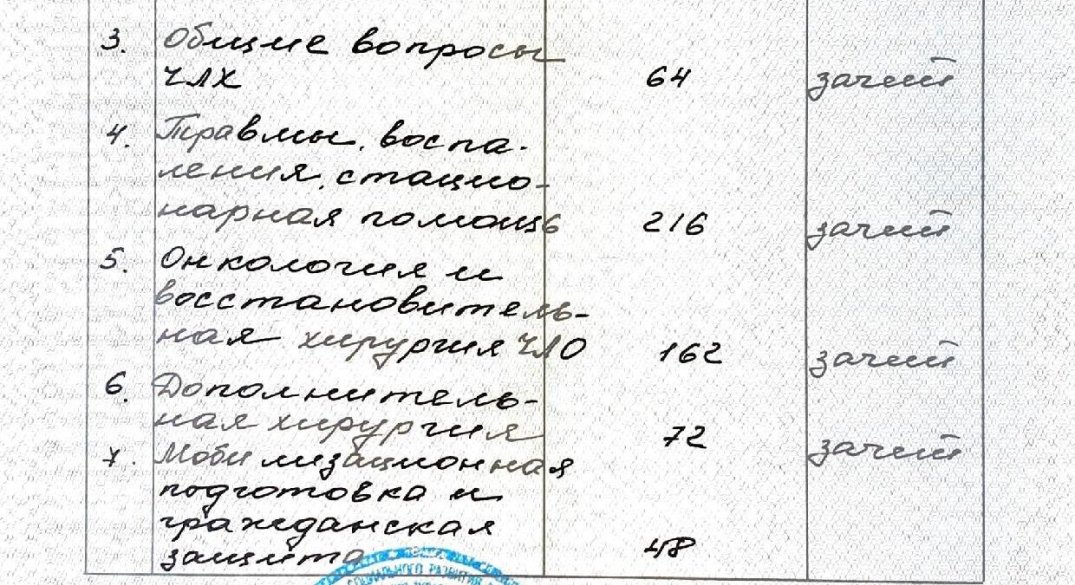 3. Общие вопросы
ЧЛХ 64 зачет
4. Травмы, воспа-
ления, стацио-
нарная помощь 216 зачет
5. Онкология и
восстановитель-
ная хирургия ЧЛО 162 зачет
6. Дополнитель-
ная хирургия 72 зачет
7. Мобилизационная
подготовка и
гражданская
защита 48
СОЦИАЛЬНОГО РАЗВИТИЯ